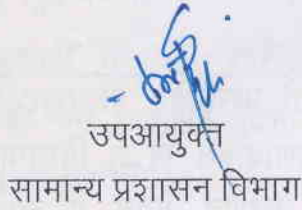 उपआयुक्त
सामान्य प्रशासन विभाग